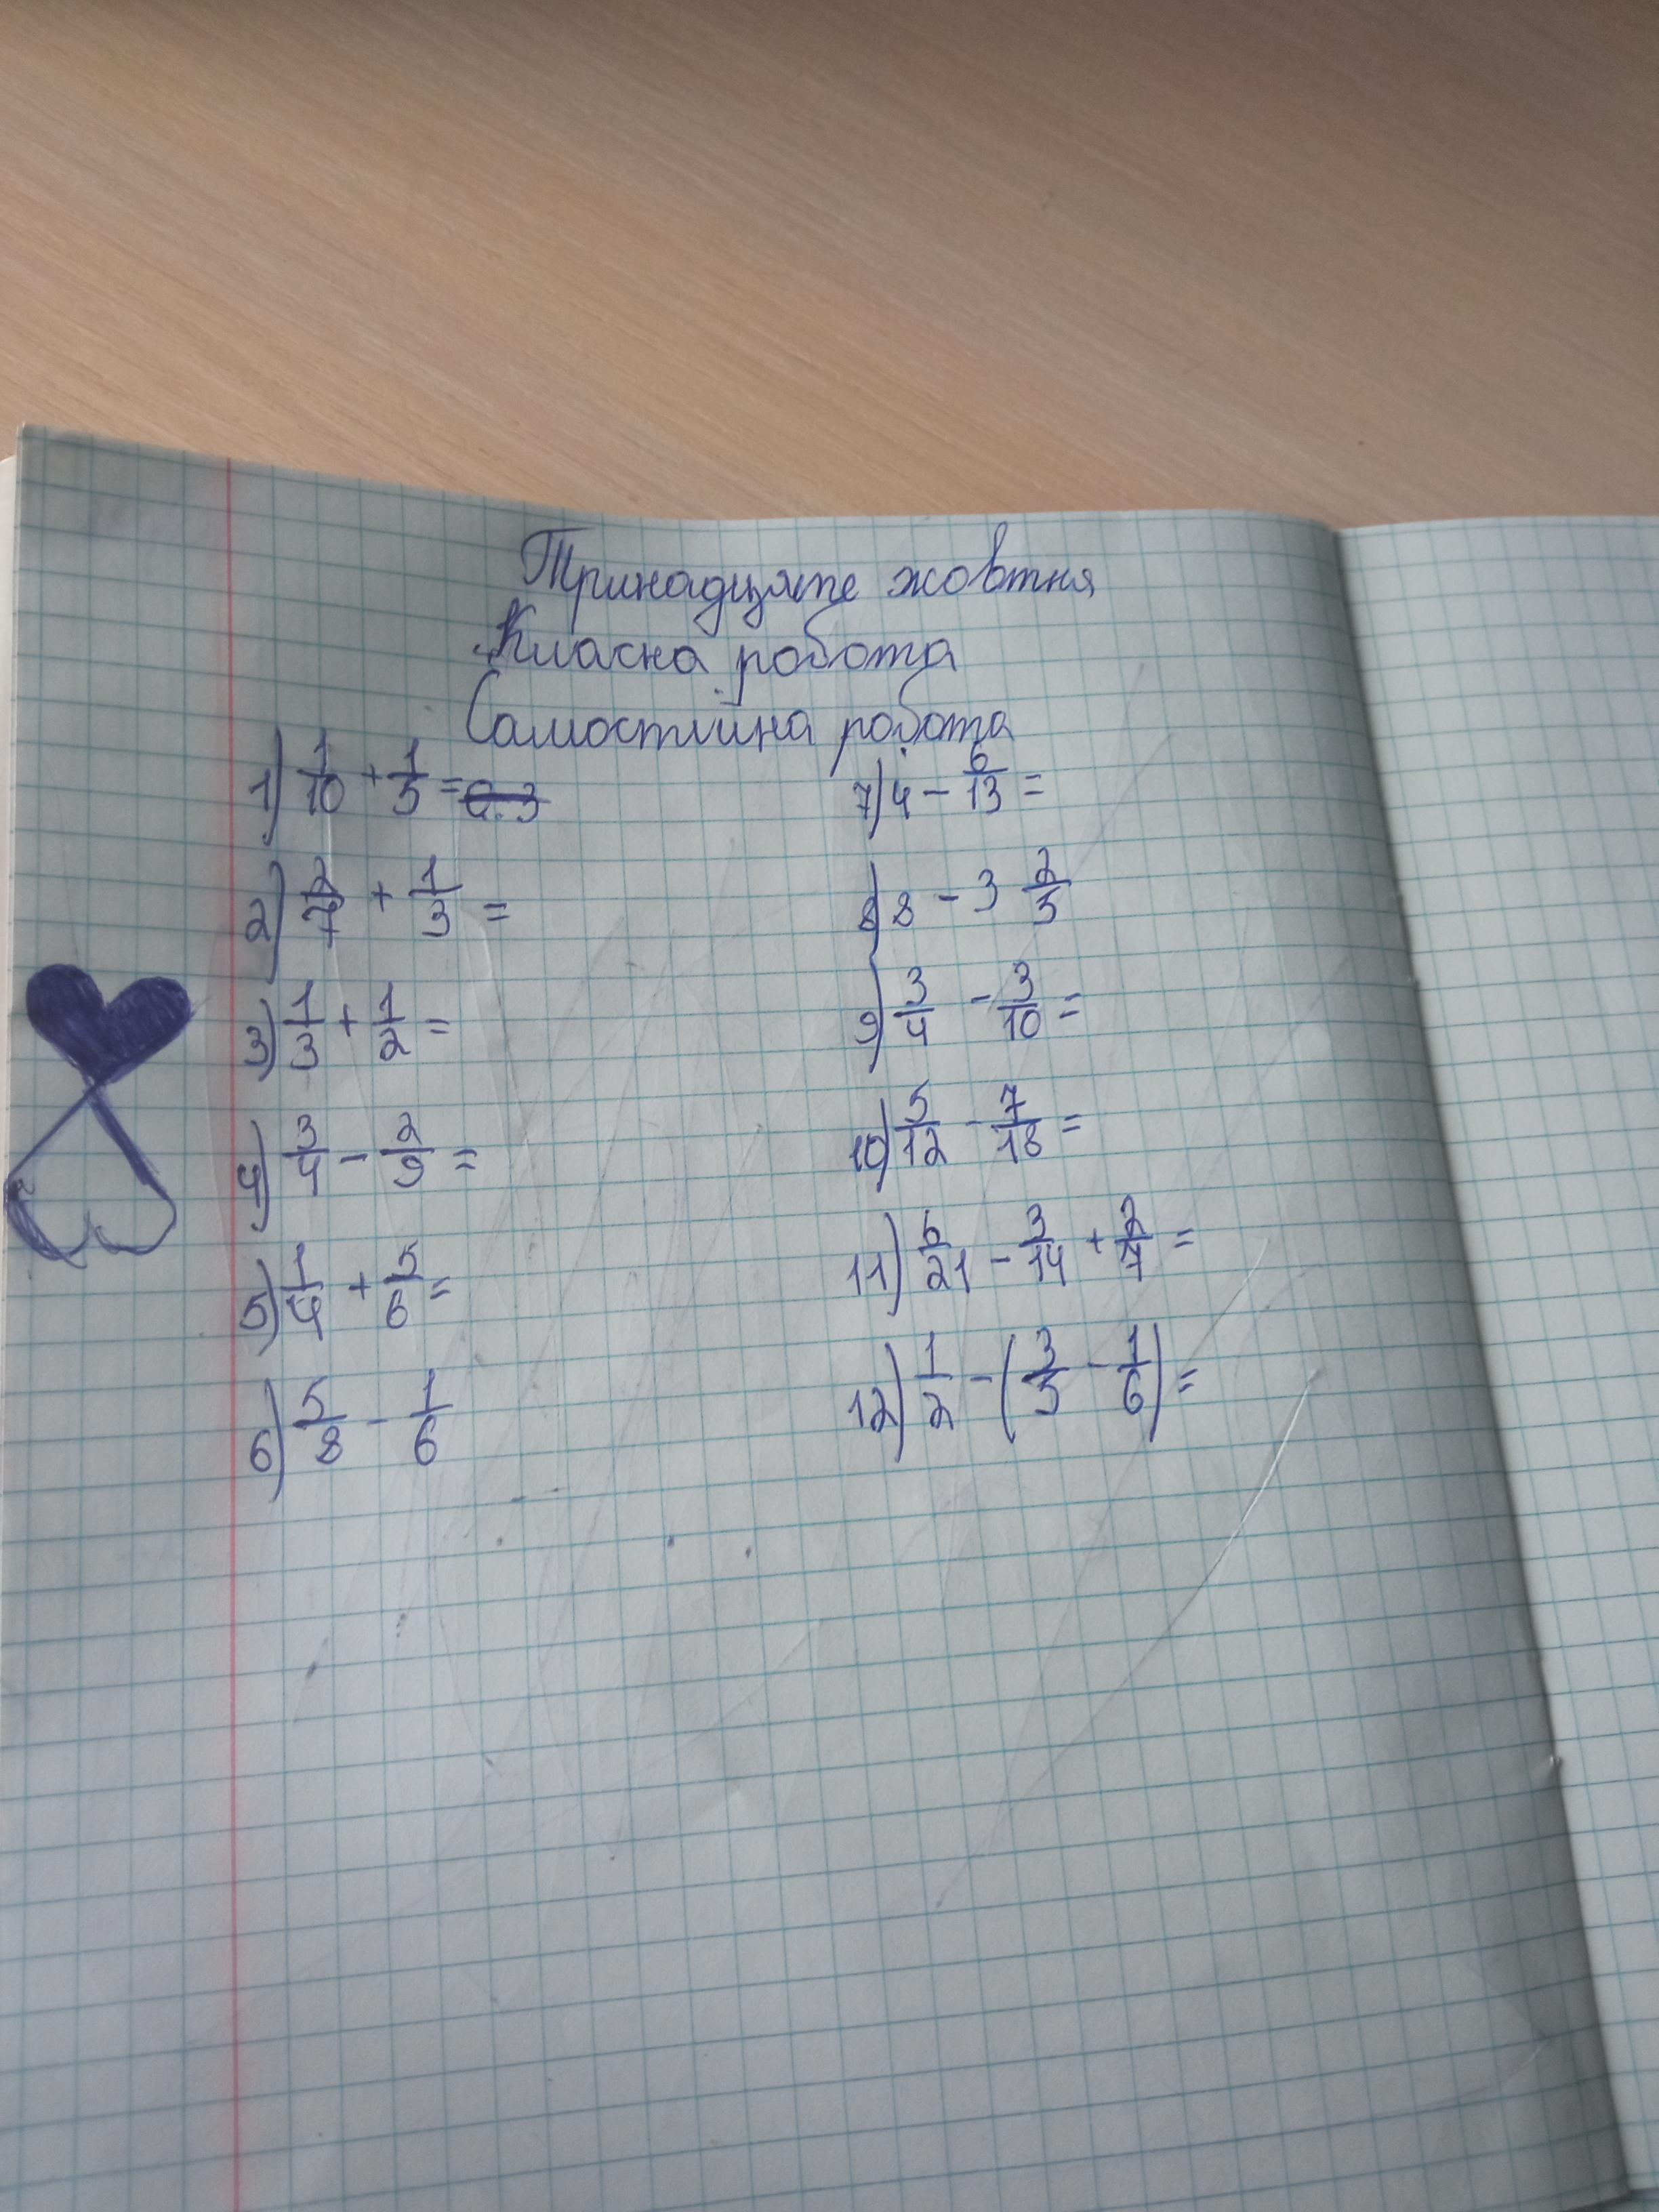 Тринадцяте жовтня
Класна робота
Самостійна робота
1) 1/10 + 1/5 = 0.3
2) 2/7 + 1/3 =
3) 1/3 + 1/2 =
4) 3/4 - 2/9 =
5) 1/4 + 5/6 =
6) 5/8 - 1/6
7) 4 - 6/13 =
8) 8 - 3 2/5
9) 3/4 - 3/10 =
10) 5/12 - 7/18 =
11) 6/21 - 3/14 + 2/7 =
12) 1/2 - (3/5 - 1/6) =